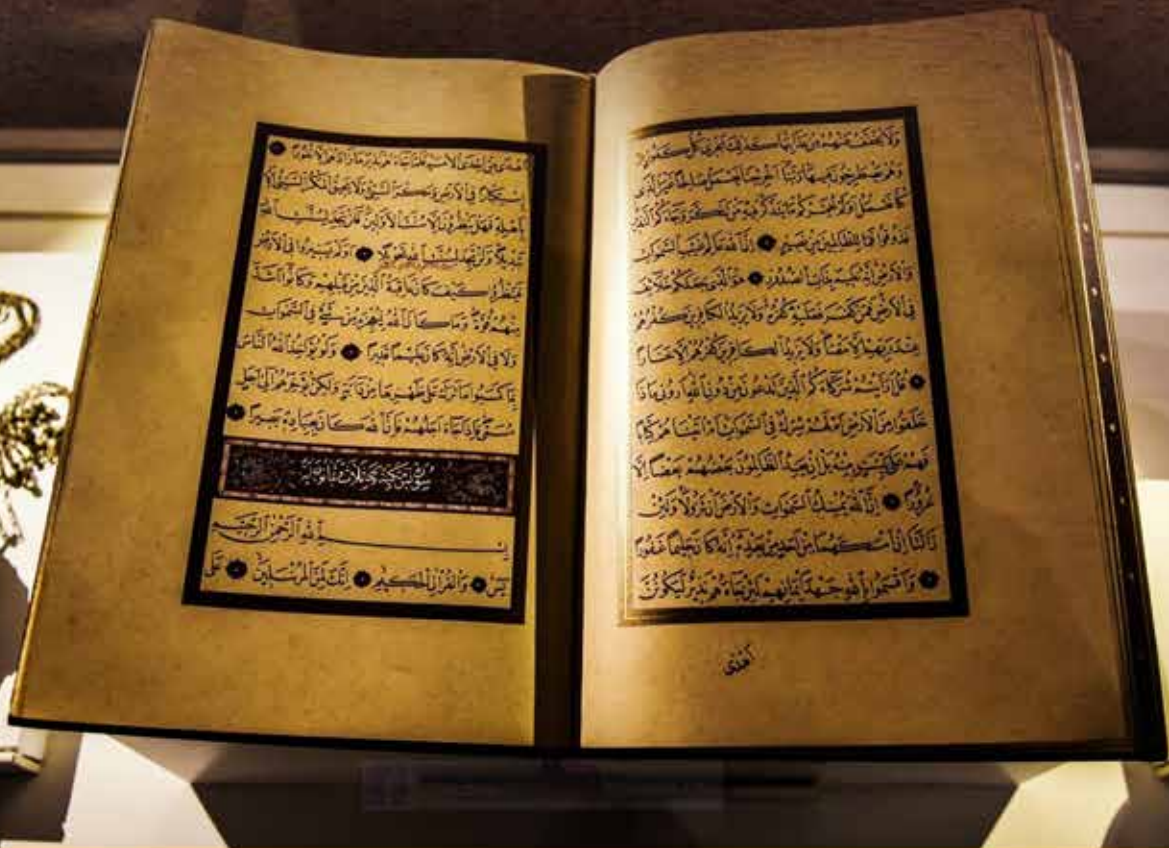 وَلَا يُخَفَّفُ عَنْهُمْ مِنْ عَذَابِهَا كَذٰلِكَ نَجْزِي كُلَّ كَفُورٍ
وَهُمْ يَصْطَرِخُونَ فِيهَا رَبَّنَا اَخْرِجْنَا نَعْمَلْ صَالِحًا غَيْرَ الَّذِي
كُنَّا نَعْمَلُ اَوَلَمْ نُعَمِّرْكُمْ مَا يَتَذَكَّرُ فِيهِ مَنْ تَذَكَّرَ وَجَاءَكُمُ النَّذِيرُ
فَذُوقُوا فَمَا لِلظَّالِمِينَ مِنْ نَصِيرٍ ۝ اِنَّ اللّٰهَ عَالِمُ غَيْبِ السَّمٰوَاتِ
وَالْاَرْضِ اِنَّهُ عَلِيمٌ بِذَاتِ الصُّدُورِ ۝ هُوَ الَّذِي جَعَلَكُمْ خَلَائِفَ
فِي الْاَرْضِ فَمَنْ كَفَرَ فَعَلَيْهِ كُفْرُهُ وَلَا يَزِيدُ الْكَافِرِينَ كُفْرُهُمْ
عِنْدَ رَبِّهِمْ اِلَّا مَقْتًا وَلَا يَزِيدُ الْكَافِرِينَ كُفْرُهُمْ اِلَّا خَسَارًا
۝ قُلْ اَرَاَيْتُمْ شُرَكَاءَكُمُ الَّذِينَ تَدْعُونَ مِنْ دُونِ اللّٰهِ اَرُونِي مَاذَا
خَلَقُوا مِنَ الْاَرْضِ اَمْ لَهُمْ شِرْكٌ فِي السَّمٰوَاتِ اَمْ اٰتَيْنَاهُمْ كِتَابًا
فَهُمْ عَلٰى بَيِّنَتٍ مِنْهُ بَلْ اِنْ يَعِدُ الظَّالِمُونَ بَعْضُهُمْ بَعْضًا اِلَّا
غُرُورًا ۝ اِنَّ اللّٰهَ يُمْسِكُ السَّمٰوَاتِ وَالْاَرْضَ اَنْ تَزُولَا وَلَئِنْ
زَالَتَا اِنْ اَمْسَكَهُمَا مِنْ اَحَدٍ مِنْ بَعْدِهِ اِنَّهُ كَانَ حَلِيمًا غَفُورًا
۝ وَاَقْسَمُوا بِاللّٰهِ جَهْدَ اَيْمَانِهِمْ لَئِنْ جَاءَهُمْ نَذِيرٌ لَيَكُونُنَّ
اَهْدٰى
اَهْدٰى مِنْ اِحْدَى الْاُمَمِ فَلَمَّا جَاءَهُمْ نَذِيرٌ مَا زَادَهُمْ اِلَّا نُفُورًا ۝
اِسْتِكْبَارًا فِي الْاَرْضِ وَمَكْرَ السَّيِّئِ وَلَا يَحِيقُ الْمَكْرُ السَّيِّئُ اِلَّا
بِاَهْلِهِ فَهَلْ يَنْظُرُونَ اِلَّا سُنَّتَ الْاَوَّلِينَ فَلَنْ تَجِدَ لِسُنَّتِ اللّٰهِ
تَبْدِيلًا وَلَنْ تَجِدَ لِسُنَّتِ اللّٰهِ تَحْوِيلًا ۝ اَوَلَمْ يَسِيرُوا فِي الْاَرْضِ
فَيَنْظُرُوا كَيْفَ كَانَ عَاقِبَةُ الَّذِينَ مِنْ قَبْلِهِمْ وَكَانُوا اَشَدَّ
مِنْهُمْ قُوَّةً وَمَا كَانَ اللّٰهُ لِيُعْجِزَهُ مِنْ شَيْءٍ فِي السَّمٰوَاتِ
وَلَا فِي الْاَرْضِ اِنَّهُ كَانَ عَلِيمًا قَدِيرًا ۝ وَلَوْ يُؤَاخِذُ اللّٰهُ النَّاسَ
بِمَا كَسَبُوا مَا تَرَكَ عَلٰى ظَهْرِهَا مِنْ دَابَّةٍ وَلٰكِنْ يُؤَخِّرُهُمْ اِلٰى اَجَلٍ
مُسَمًّى فَاِذَا جَاءَ اَجَلُهُمْ فَاِنَّ اللّٰهَ كَانَ بِعِبَادِهِ بَصِيرًا ۝
بِسْمِ اللّٰهِ الرَّحْمٰنِ الرَّحِيمِ
يٰسٓ ۝ وَالْقُرْاٰنِ الْحَكِيمِ ۝ اِنَّكَ لَمِنَ الْمُرْسَلِينَ ۝ عَلٰى